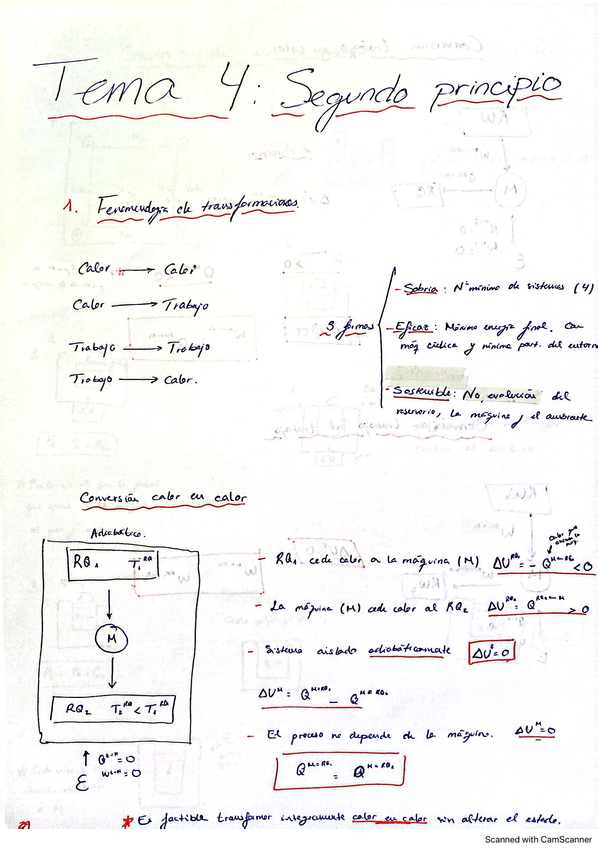 Tema 4: Segundo principio
1. Fenomenología de transformaciones
Calor → Calor
Calor → Trabajo
Trabajo → Trabajo
Trabajo → Calor.
3 formas
- Sobria: Nº mínimo de sistemas (4)
- Eficaz: Máxima energía final. Con
máq cíclica y mínima part. del entorno
- Sostenible: No evolución del
reservorio, la máquina y el ambiente
Conversión calor en calor
Adiabático.
RQ₁ T₁ᴿQ
M
RQ₂ T₂ᴿQ < T₁ᴿQ
Q = 0
W = 0
ε
- RQ₁ cede calor a la máquina (M) ΔU^RQ₁ = - Q^M←RQ₁ < 0
- La máquina (M) cede calor al RQ₂ ΔU^RQ₂ = Q^RQ₂←M > 0
- Sistema aislado adiabáticamente ΔU^ε = 0
ΔU^M = Q^M←RQ₁ - Q^M→RQ₂
- El proceso no depende de la máquina. ΔU^M = 0
Q^M←RQ₁ = Q^M→RQ₂
* Es factible transformar íntegramente calor en calor sin alterar el estado.
29
Scanned with CamScanner